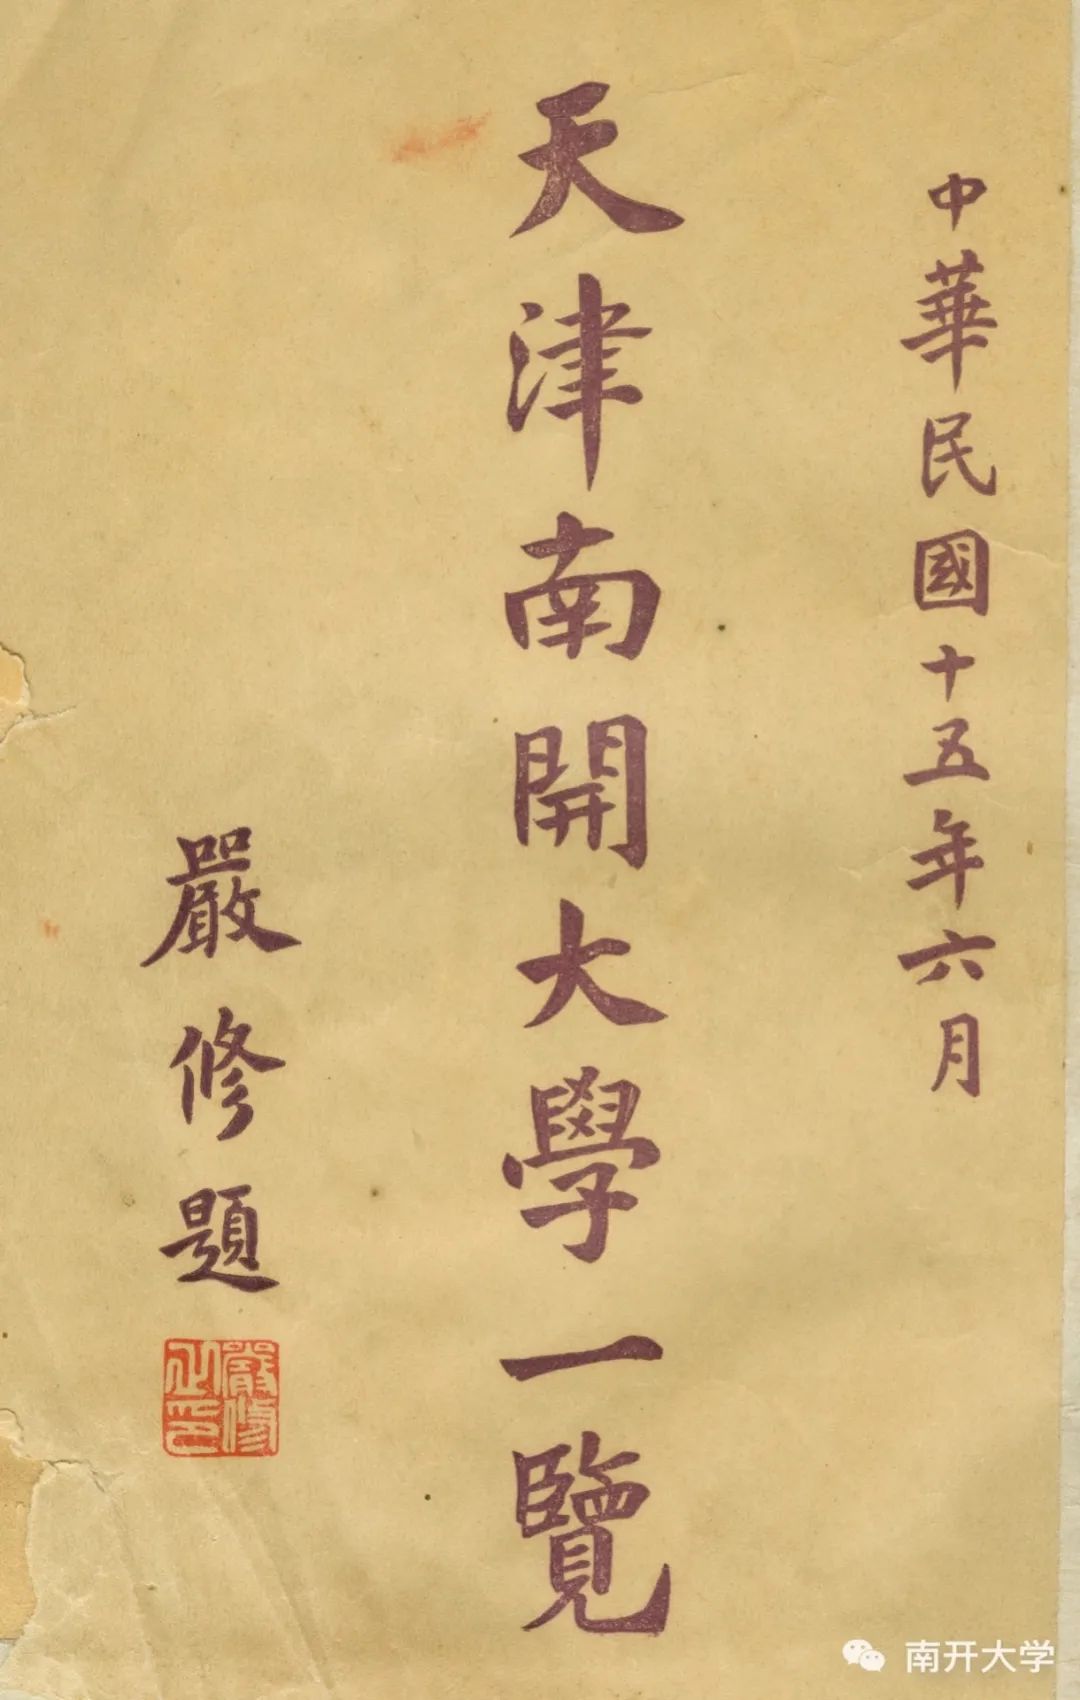 中華民國十五年六月
天津南開大學一覽
嚴修題
嚴修之印
南开大学